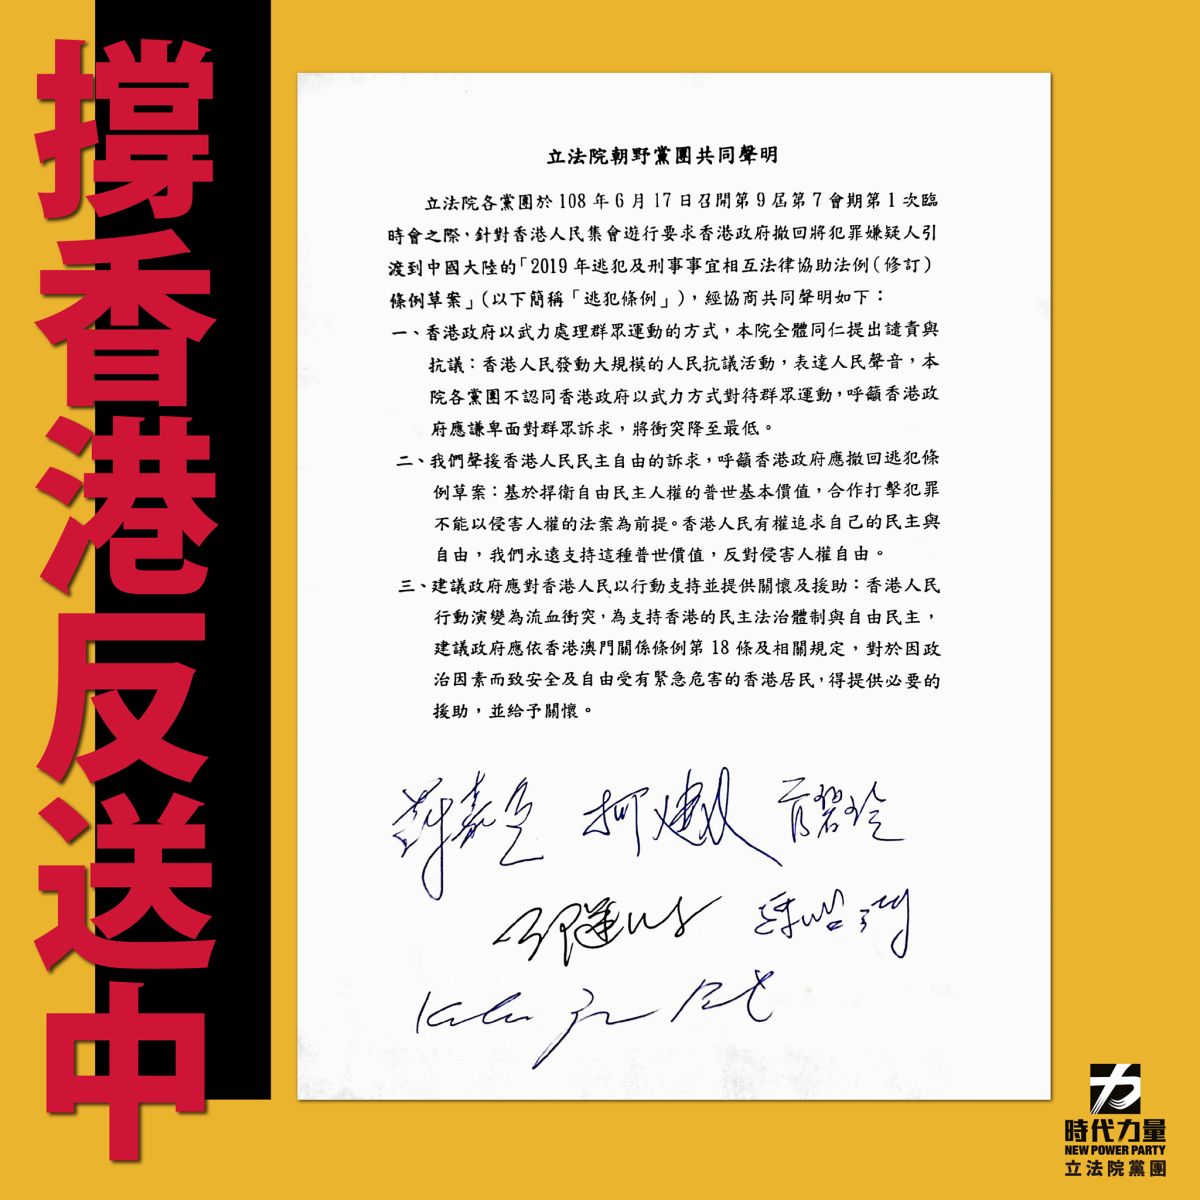 撐香港反送中
立法院朝野黨團共同聲明
立法院各黨團於108年6月17日召開第9屆第7會期第1次臨
時會之際，針對香港人民集會遊行要求香港政府撤回將犯罪嫌疑人引
渡到中國大陸的「2019年逃犯及刑事事宜相互法律協助法例（修訂）
條例草案」（以下簡稱「逃犯條例」），經協商共同聲明如下：
一、香港政府以武力處理群眾運動的方式，本院全體同仁提出譴責與
抗議：香港人民發動大規模的人民抗議活動，表達人民聲音，本
院各黨團不認同香港政府以武力方式對待群眾運動，呼籲香港政
府應謙卑面對群眾訴求，將衝突降至最低。
二、我們聲援香港人民民主自由的訴求，呼籲香港政府應撤回逃犯條
例草案：基於捍衛自由民主人權的普世基本價值，合作打擊犯罪
不能以侵害人權的法案為前提。香港人民有權追求自己的民主與
自由，我們永遠支持這種普世價值，反對侵害人權自由。
三、建議政府應對香港人民以行動支持並提供關懷及援助：香港人民
行動演變為流血衝突，為支持香港的民主法治體制與自由民主，
建議政府應依香港澳門關係條例第18條及相關規定，對於因政
治因素而致安全及自由受有緊急危害的香港居民，得提供必要的
援助，並給予關懷。
時代力量
NEW POWER PARTY
立法院黨團